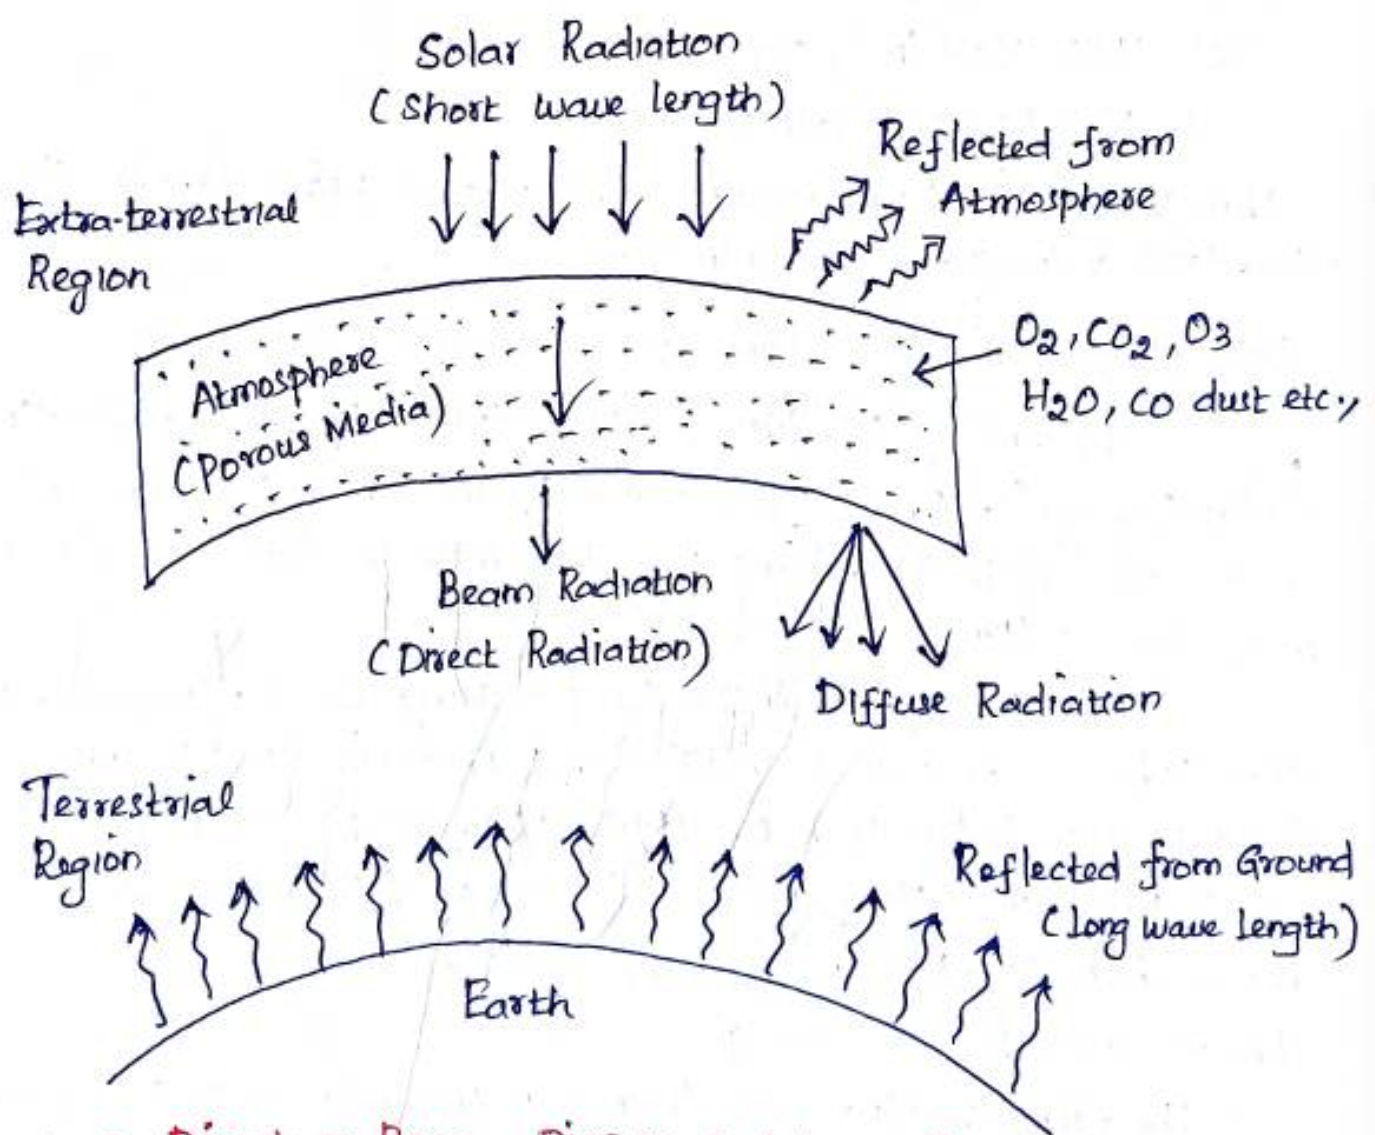 Solar Radiation
(Short wave length)
Reflected from
Atmosphere
Extra-terrestrial
Region
O2, CO2, O3
H2O, CO dust etc.,
Atmosphere
(Porous Media)
Beam Radiation
(Direct Radiation)
Diffuse Radiation
Terrestrial
Region
Reflected from Ground
(long wave length)
Earth